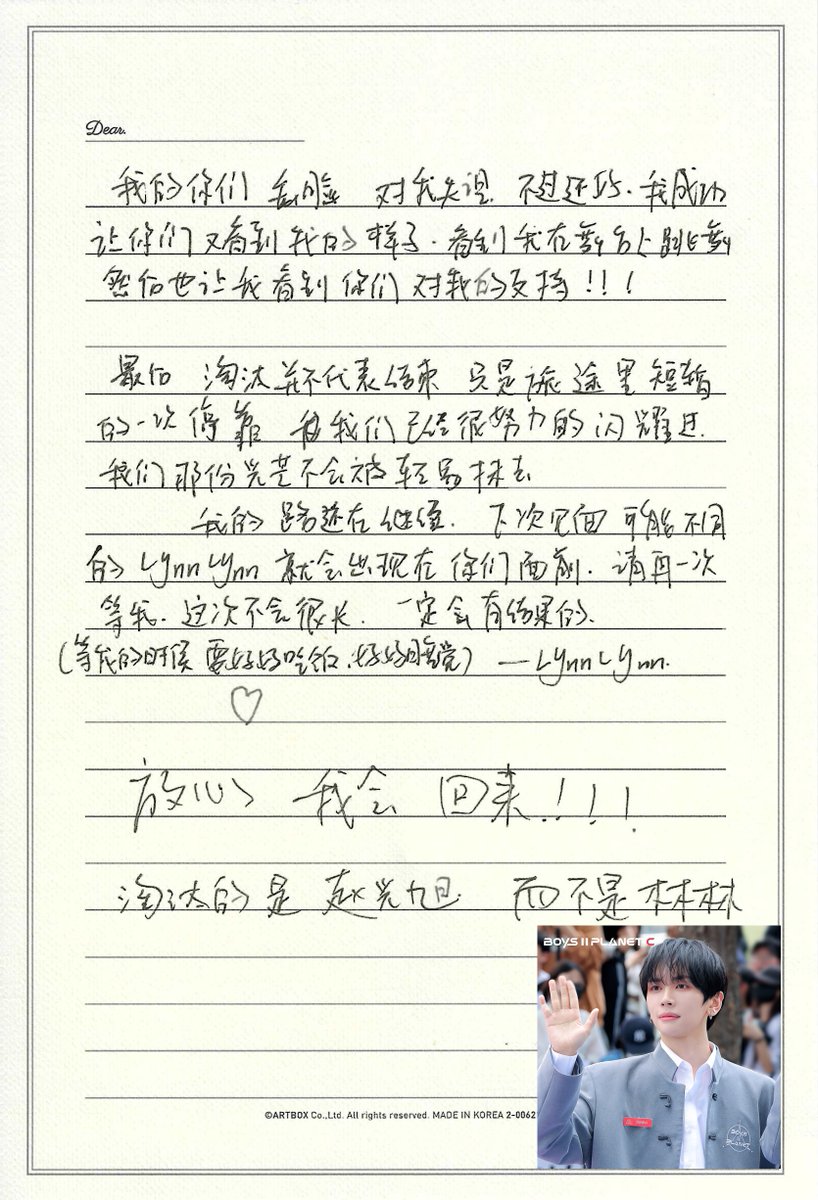 Dear.
我的你们 对我失望 不过还好、我成功
让你们又看到我的样子、看到我在舞台上跳舞
然后也让我看到你们对我的支持!!!
最后 淘汰并不代表结束 只是旅途里短暂
的一次停靠 我们已经很努力的闪耀过.
我们那份光芒不会被轻易抹去
我的路还在继续. 下次见面 可能不同
的 Lynn Lynn 就会出现在你们面前. 请再一次
等我. 这次不会很长. 一定会有结果的.
(等我的时候 要好好吃饭、好好睡觉) —Lynn Lynn.
放心 我会 回来!!!
淘汰的是 赵光旭 而不是林林
BOYS II PLANET C
BOYS II PLANET
©ARTBOX Co.,Ltd. All rights reserved. MADE IN KOREA 2-0062